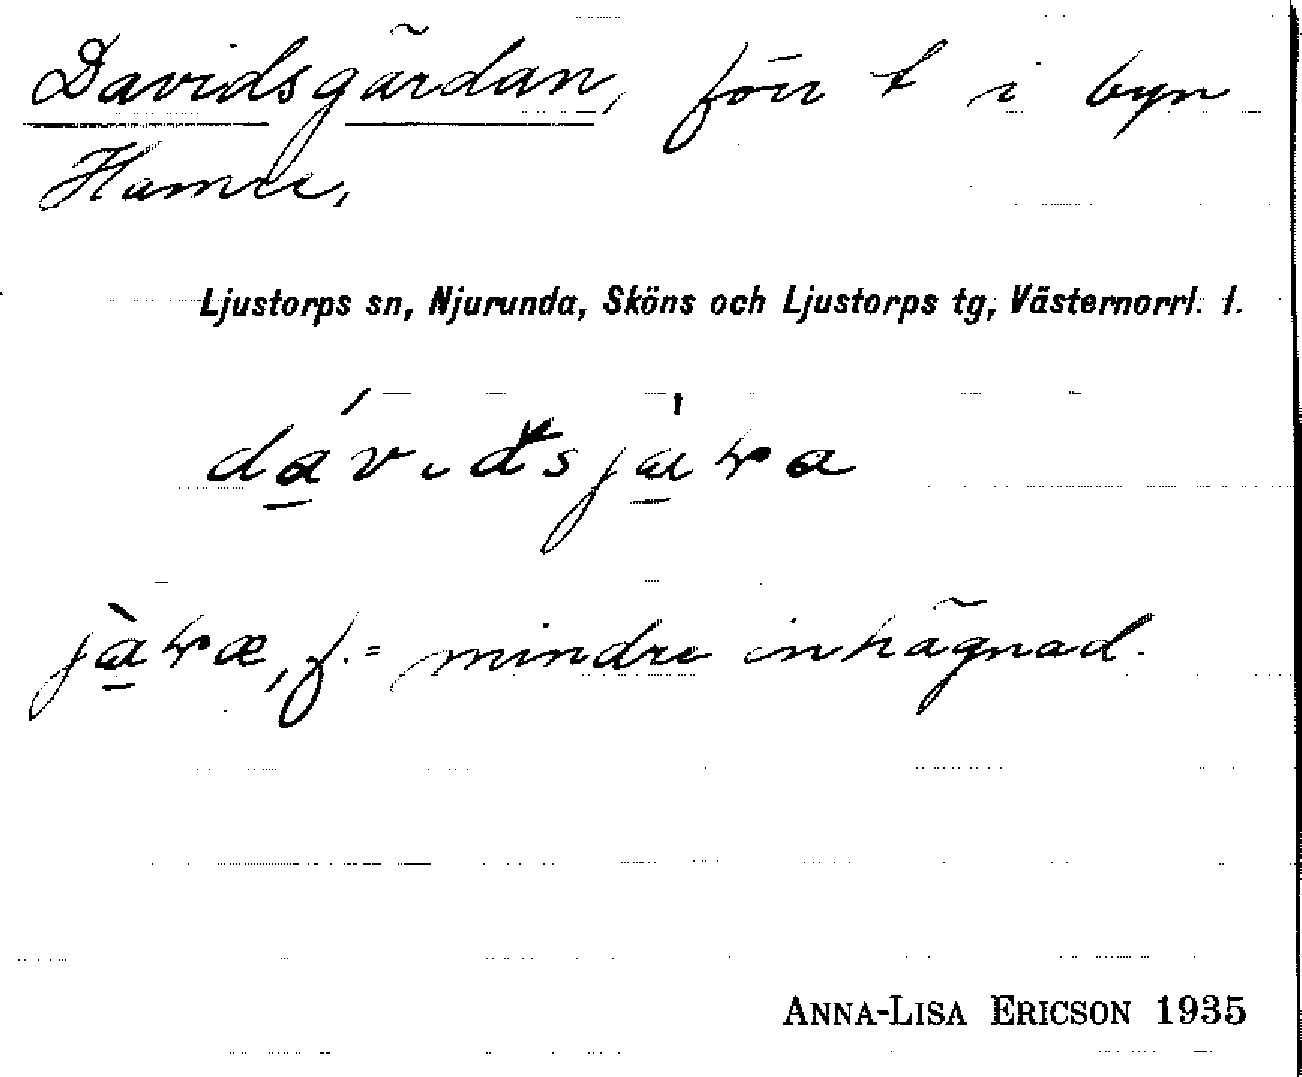 Davidsgärdan, förr t i byn
Hamre,
Ljustorps sn, Njurunda, Sköns och Ljustorps tg, Västernorrl. l.
f. = mindre inhägnad.
ANNA-LISA ERICSON 1935